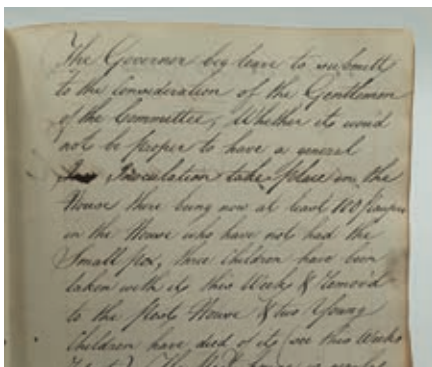 The Governor beg leave to submitt
to the Consideration of the Gentlemen
of the Committee, Whether its woud
not be proper to have a general
Inoculation take place in the
House there being now at least 100 paupers
in the House who have not had the
Small pox, three Children have been
taken with its this Week & remov'd
to the Pest House & two Young
Children have died of its (see this Weeks